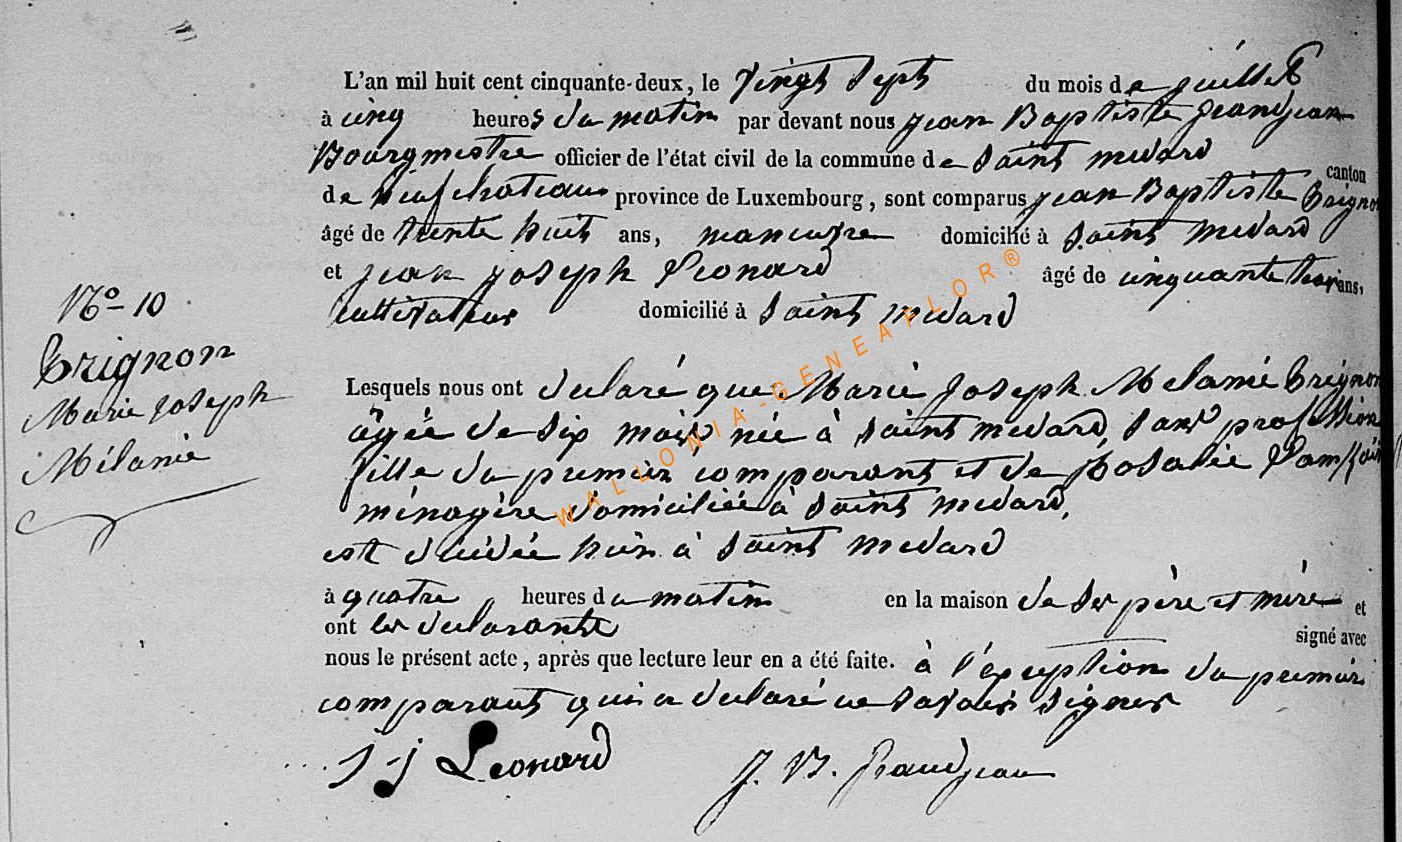 L'an mil huit cent cinquante-deux, le vingt sept du mois de juillet
à cinq heures du matin par devant nous jean Baptiste grandjean
Bourgmestre officier de l'état civil de la commune de Saint medard
canton
de Neufchateau province de Luxembourg, sont comparus jean Baptiste Trignon
âgé de trente huit ans, manœuvre domicilié à Saint medard
et jean joseph Léonard âgé de cinquante trois ans,
cultivateur domicilié à Saint medard
Nº-10
Trignon
Marie joseph
Mélanie
Lesquels nous ont declaré que Marie joseph Melanie Trignon
âgée de six mois née à Saint medard, sans profession
fille du premier comparant et de Rosalie
ménagère domiciliée à Saint medard,
est décédée hier à Saint medard
à quatre heures du matin en la maison de ses père et mère et
ont les declarants signé avec
nous le présent acte, après que lecture leur en a été faite. à l'exception du premier
comparant qui a declaré ne savoir signer
J-j Leonard J. B. Grandjean
WALLONIA-GENEAFLOR®